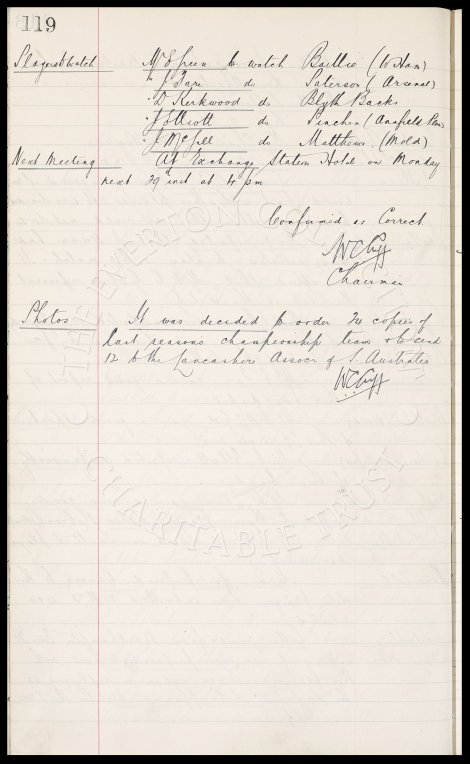 119
Players to watch Mr E Green to watch Baillie (W. Ham)
" J Fare do Paterson (Arsenal)
" D Kirkwood do Blyth Backs
" J Elliott do Pinchen (Anafield Plain)
" J McGill do Matthews (Mold)
Next Meeting At Exchange Station Hotel on Monday
next 29th inst at 4 pm
Confirmed as Correct
W C Cuff
Chairman
Photos It was decided to order 24 copies of
last seasons championship team & to send
12 to the Lancashire Assocn of S. Australia
W C Cuff
THE EVERTON COLLECTION
CHARITABLE TRUST